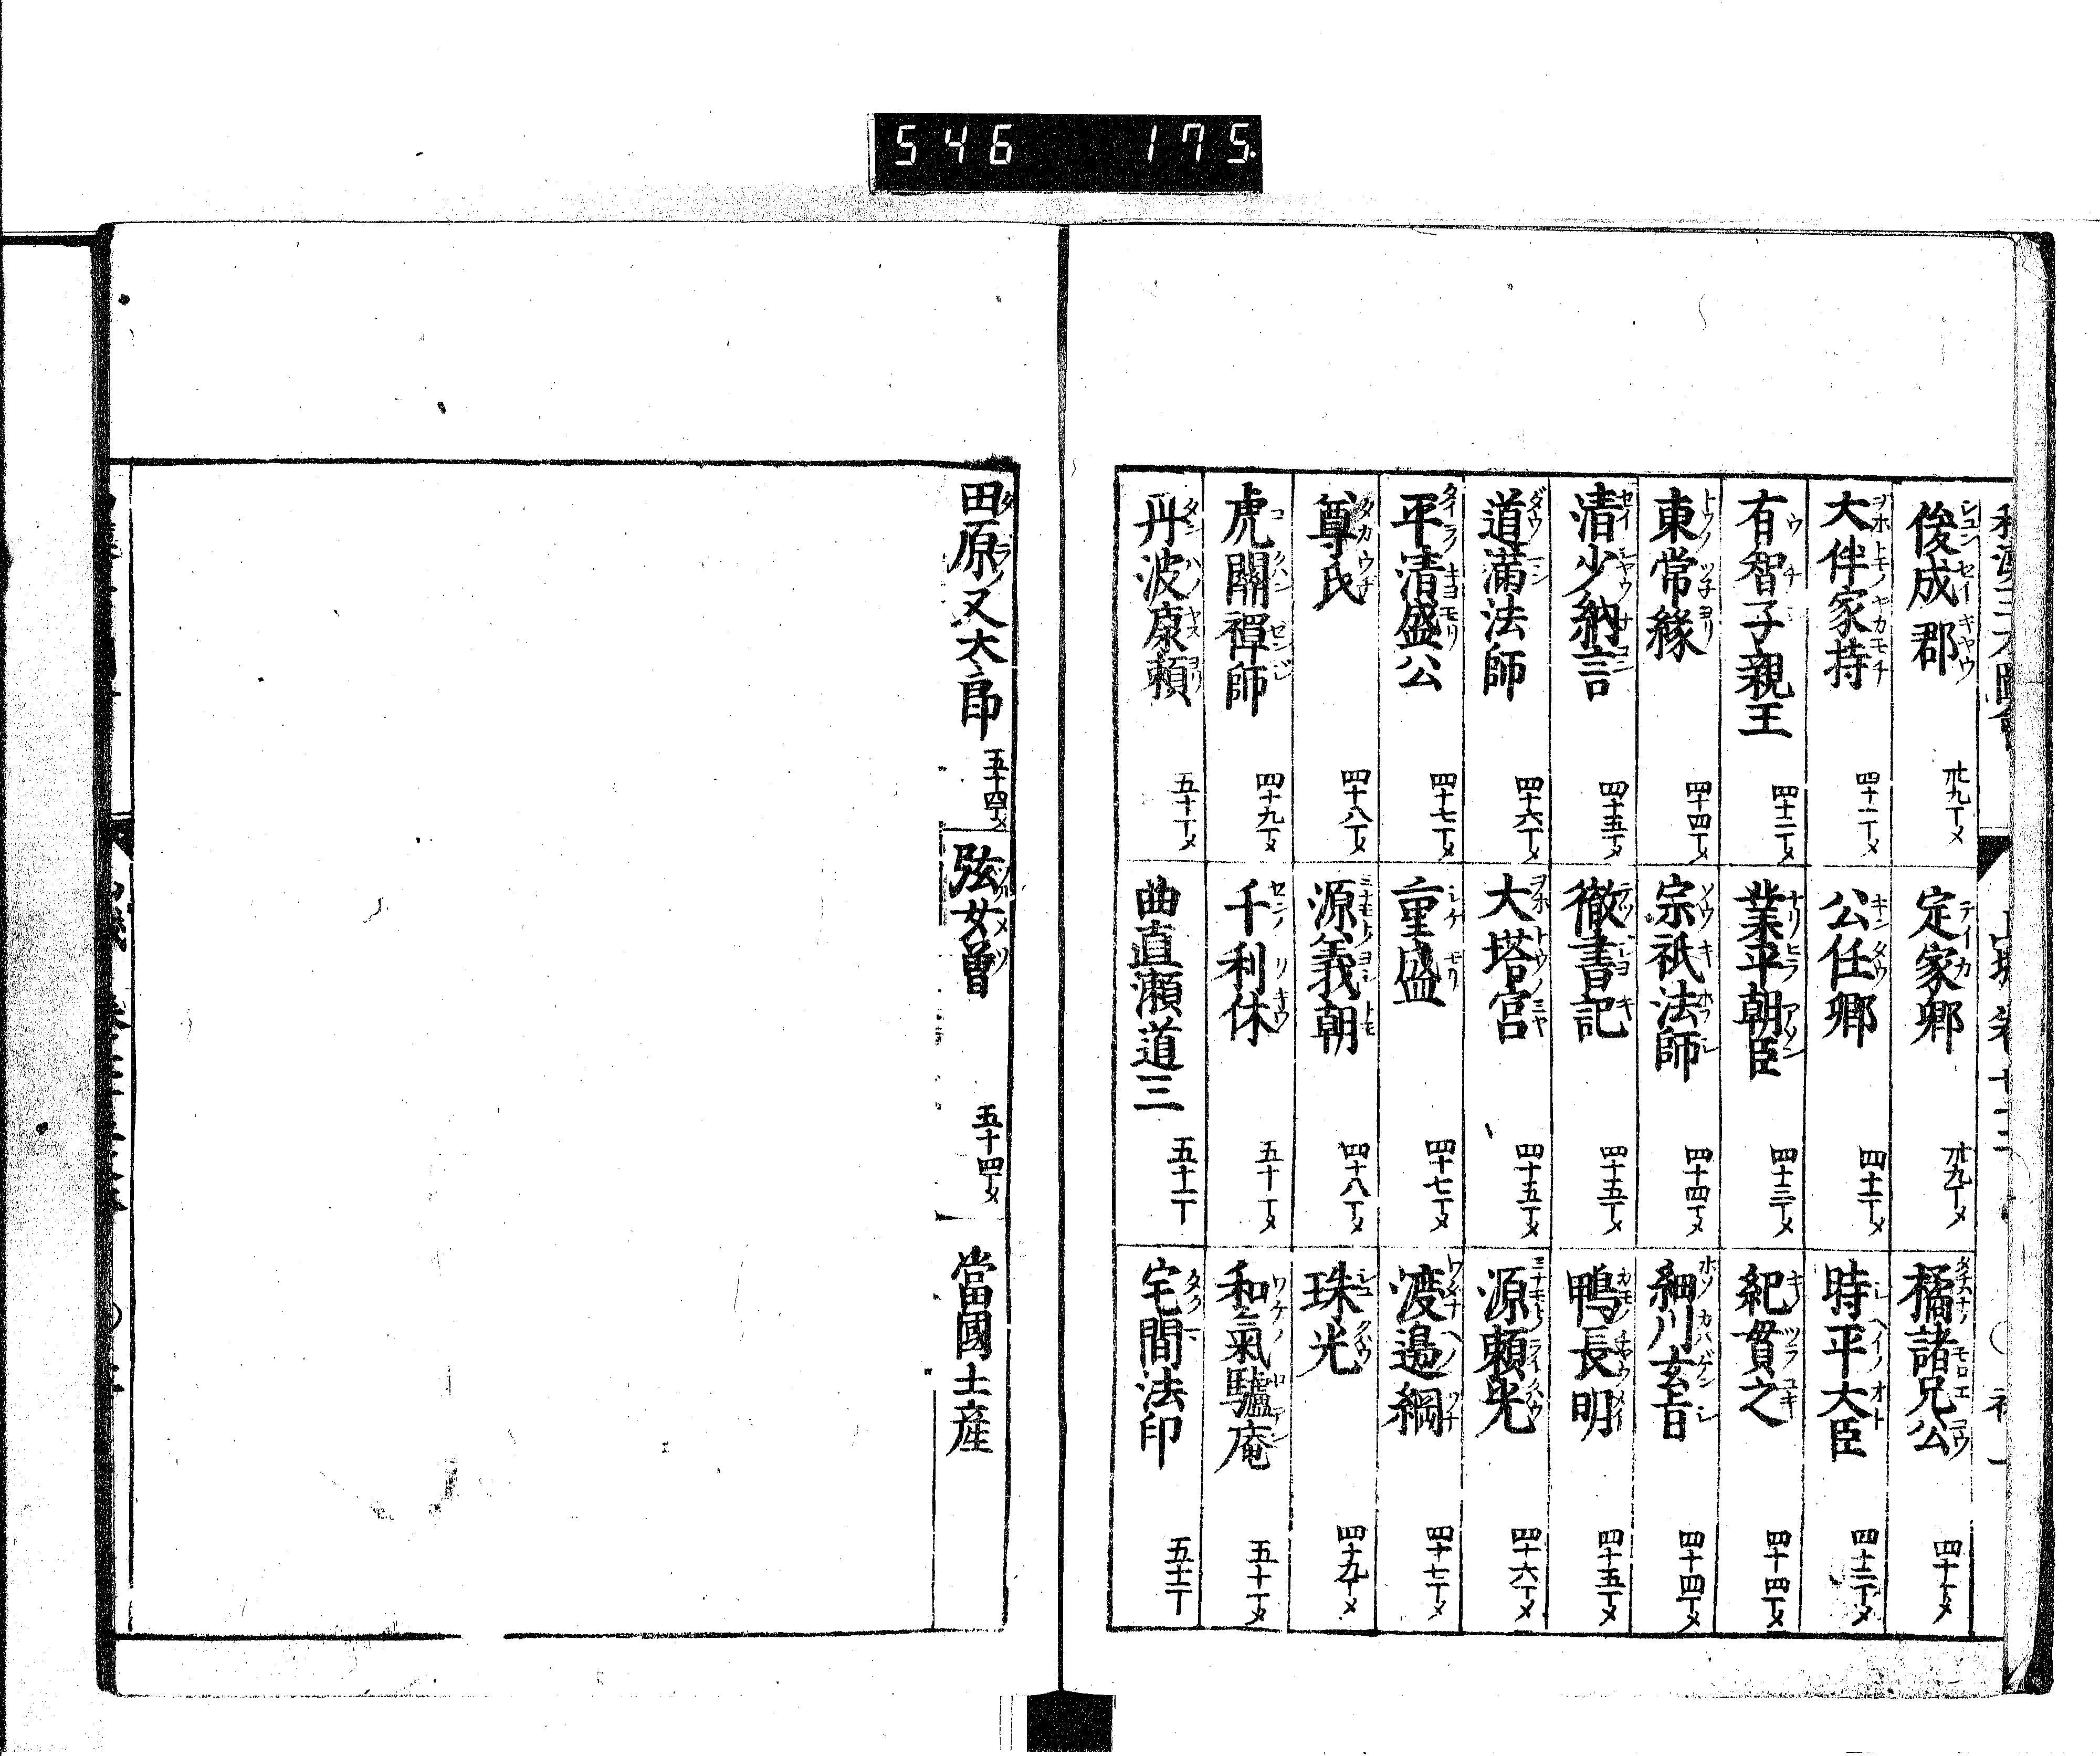 546 175
俊成郷 丗九丁メ
定家卿 丗九丁メ
橘諸兄公 四十丁メ
大伴家持 四十一丁メ
公任卿 四十二丁メ
時平大臣 四十二丁メ
有智子親王 四十二丁メ
業平朝臣 四十三丁メ
紀貫之 四十四丁メ
東常縁 四十四丁メ
宗祇法師 四十四丁メ
細川玄旨 四十四丁メ
清少納言 四十五丁メ
徹書記 四十五丁メ
鴨長明 四十五丁メ
道滿法師 四十六丁メ
大塔宮 四十五丁メ
源頼光 四十六丁メ
平清盛公 四十七丁メ
重盛 四十七丁メ
渡邉綱 四十七丁メ
尊氏 四十八丁メ
源義朝 四十八丁メ
珠光 四十九丁メ
虎關禪師 四十九丁メ
千利休 五十丁メ
和氣驢庵 五十丁メ
丹波康頼 五十丁メ
曲直瀬道三 五十二丁
宅間法印 五十二丁
田原又太郎 五十四丁メ
弦女曽 五十四丁メ
當國土産